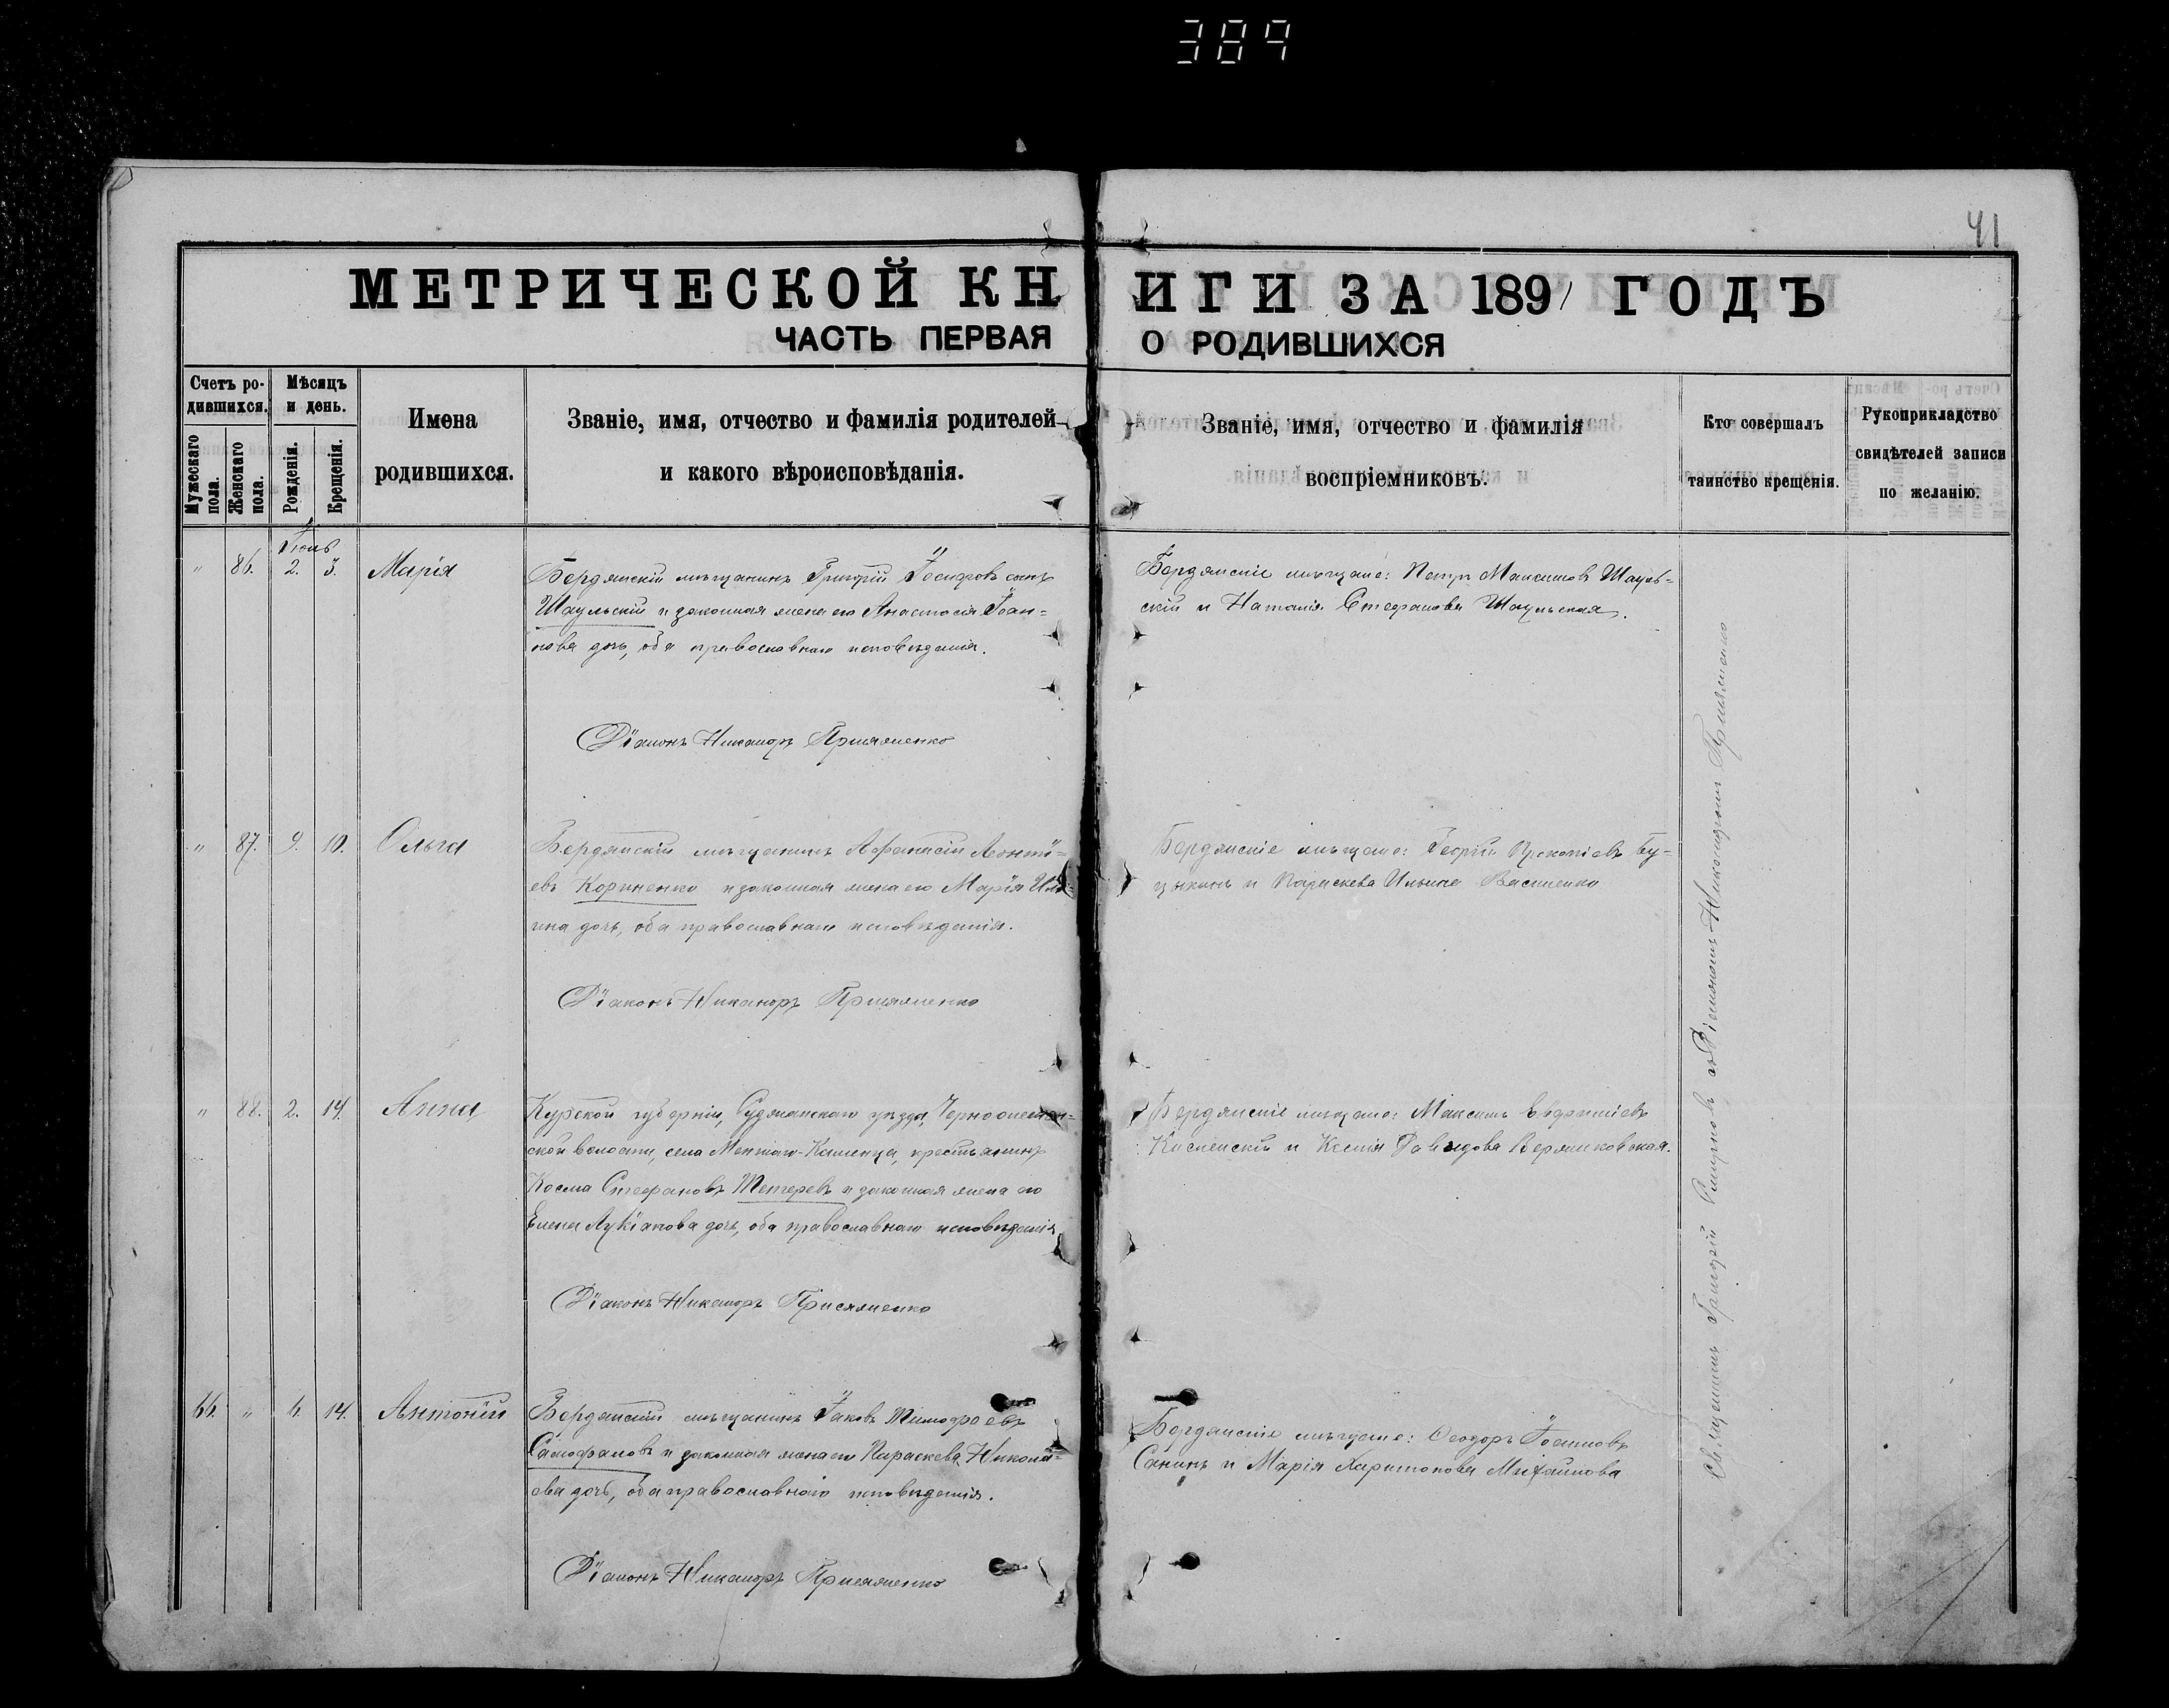 389
41
МЕТРИЧЕСКОЙ КНИГИ ЗА 1891 ГОДЪ
ЧАСТЬ ПЕРВАЯ О РОДИВШИХСЯ
Счетъ ро-
дившихся.
Мужескаго
пола.
Женскаго
пола.
Мѣсяцъ
и день.
Рожденія.
Крещенія.
Имена
родившихся.
Званіе, имя, отчество и фамилія родителей
и какого вѣроисповѣданія.
Званіе, имя, отчество и фамилія
воспріемниковъ.
Кто совершалъ
таинство крещенія.
Рукоприкладство
свидѣтелей записи
по желанію.
" 86. 2. 3. Марія
Бердянскій мѣщанинъ Григорій Іосифовъ сынъ
Шаульскій и законная жена его Анастасія Іоан-
нова дочь, оба православнаго исповѣданія.
Діаконъ Никаноръ Присяженко
Бердянскіе мѣщане: Петръ Максимовъ Шауль-
скій и Наталія Стефанова Шаульская.
" 87. 9. 10. Ольга
Бердянскій мѣщанинъ Афанасій Леонті-
евъ Кориненко и законная жена его Марія Иль-
ина дочь, оба православнаго исповѣданія.
Діаконъ Никаноръ Присяженко
Бердянскіе мѣщане: Георгій Прокопіевъ Бу-
цыкинъ и Параскева Ильина Василенко
" 88. 2. 14. Анна
Курской губерніи, Суджанскаго уѣзда,
ской волости, села Каменца, крестьянинъ
Косма Стефановъ Тетеревъ и законная жена его
Елена Лукіанова дочь, оба православнаго исповѣданія
Діаконъ Никаноръ Присяженко
Бердянскіе мѣщане: Максимъ Евфиміевъ
и Ксенія Давидова
66. " 6. 14. Антоній
Бердянскій мѣщанинъ Іаковъ Тимофеевъ
Самофаловъ и законная жена его Параскева Никола-
ева дочь, оба православнаго исповѣданія.
Діаконъ Никаноръ Присяженко
Бердянскіе мѣщане: Феодоръ
Санинъ и Марія Харитонова Михайлова
Священникъ Григорій съ Діакономъ Никаноромъ Присяженко